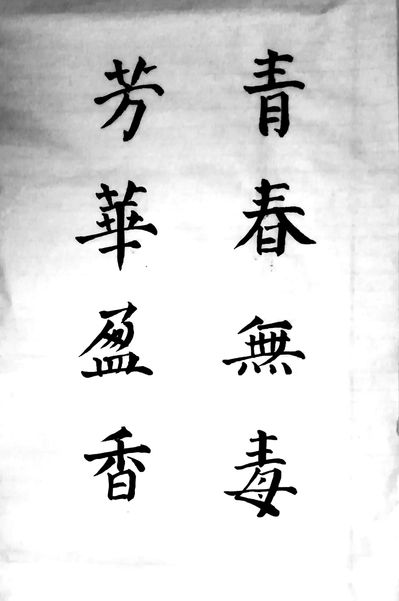 青春無毒
芳華盈香